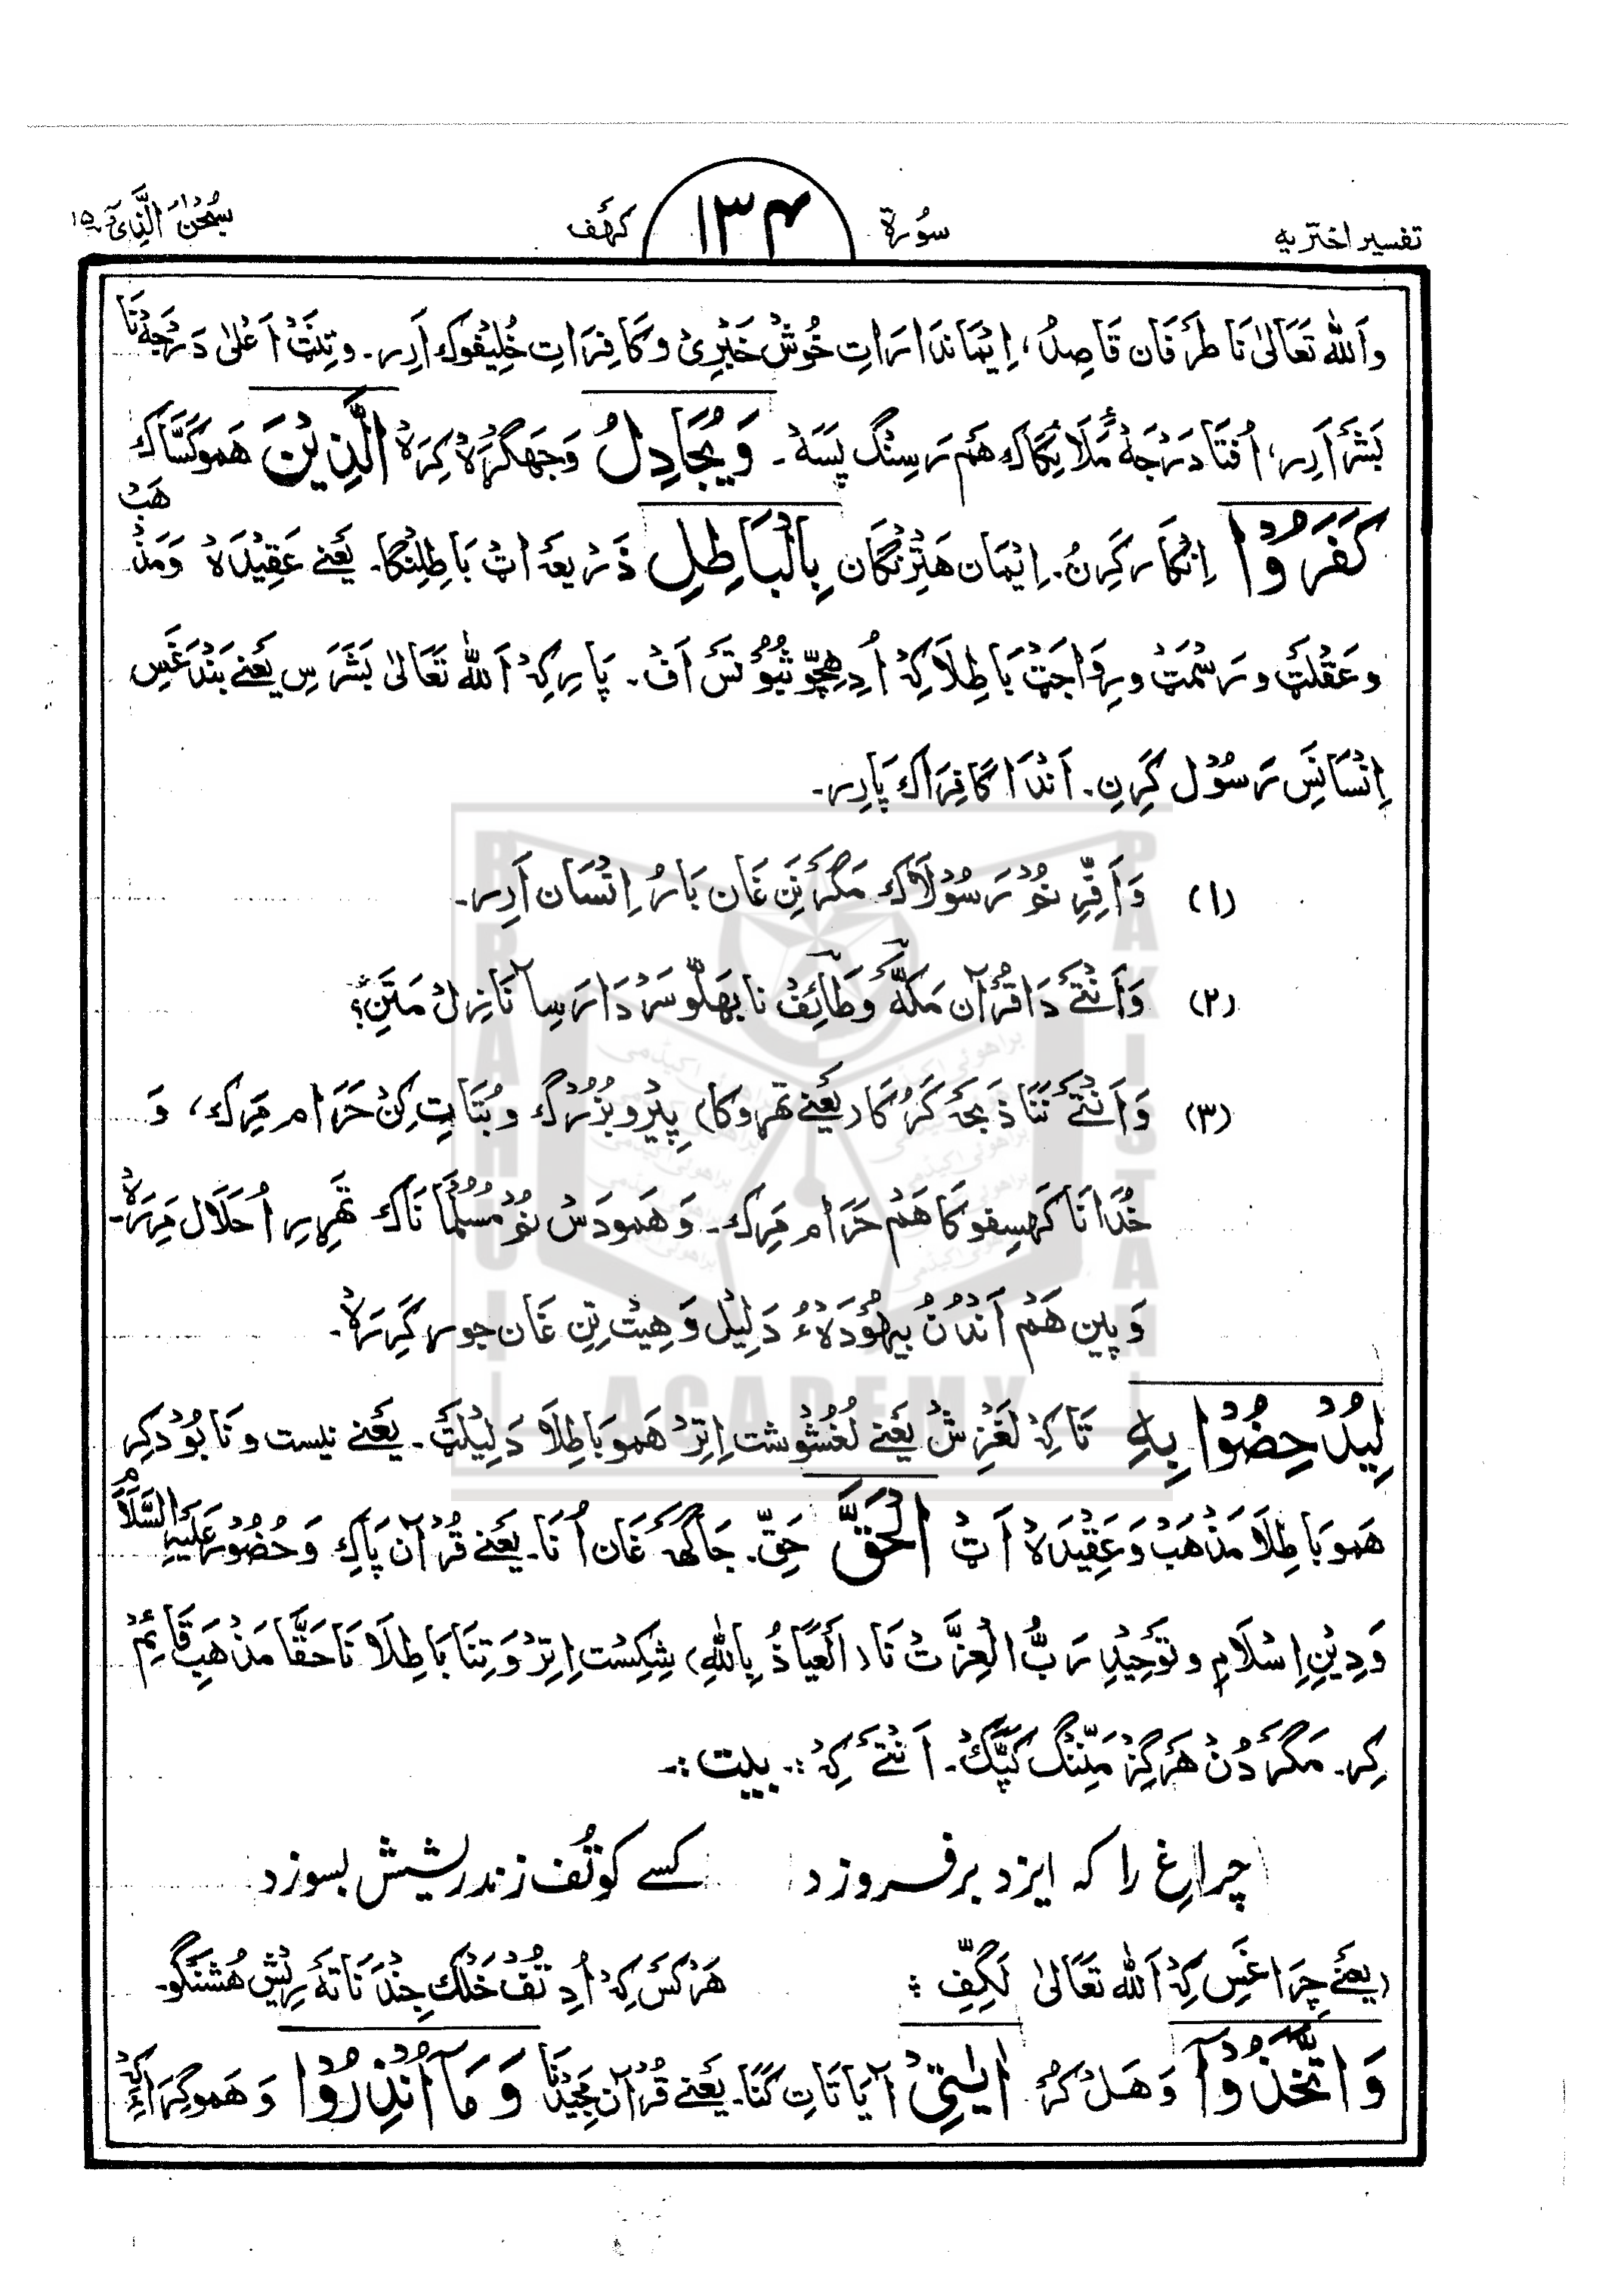 تفسیر اختریه
سُورة
۱۳۴
کَهَف
سُبْحٰنَ الَّذِیْ ۱۵
واَللّٰه تَعَالیٰ نَا طَرَفَان قَاصِدُ، اِیْمَاندَارَاتِ خُوشْ خَبْرِیْ وکَافِرَاتِ خُلِیْفوک اَدِر۔ وتِنَتْ اَعْلیٰ دَرْجَهْ نَا
بَشَرْ اَدِر، اُفتَا دَرْجَهْ مَلَائِکَاك هَم رَسِنگ پَسَهْ۔ وَیُجَادِلُ وَجَهگَرَهْ کِرَهْ الَّذِیْنَ هَموکَسَّاك
کَفَرُوْا اِنْکَار کَرِنُ۔ اِیْمَان هَتِرْنگَان بِالْبَاطِلِ ذَرِیعَہ اٹْ بَاطِلنگَا۔ یَعْنے عَقِیْدَهْ وَمَذْهَبْ
وعَقْلَٹ ورَسْمَٹ ورِوَاجَٹْ بَاطِلَا کِہْ اُدِ هِچّو ثبُوْتَس اَفْ۔ پَارِ کِہْ اَللّٰه تَعَالیٰ بَشَرَسِ یَعْنے بَنْدَغَسِ
اِنْسَانَسِ رَسُوْل کَرِنِ۔ اَنْدَا کَافِرَاك پَادِر۔
(۱) وَاَفِّرِ نُمْ رَسُوْلَاك مَگَر نَنِ غَان بَارُ اِنْسَان اَدِر۔
(۲) وَاَنْتَےْ دَا قُرْآن مَکَّہ وطَائِفْ نا بھَلُّو سَرْدَارَسِا نَازِلْ مَتَنِ؟
(۳) وَاَنْتَےْ نَنَا ذَبْحَہ کَرُکَا (یَعْنے تھروکا) پِیْرو بُزُرْگ وبُتَاتِ کِنْ حَرَام مَرِك، وَ
خُدَانَا کَهسِفوکَا هَم حَرَام مَرِك۔ وَهَمودَسْ نُمْ مُسُلْمَانَاك تَهرِر اُ حَلَال مَرِرَهْ۔
وَپین هَم اَنْدُنُ بیهُوْدَهءُ دَلِیْل وَهِیْٹ تِنِ غَان جور کَرِرَهْ۔
لِیُدْحِضُوْا بِهِ تَاکِہْ لَغْزِشْ یَعْنے لَغُشُوشت اِتِرْ هَموبَاطِلَا دَلِیْلَٹ۔ یَعْنے نیست ونَابُوْدکِر
هَموبَاطِلَا مَذْهَبْ وَعَقِیْدَهْ اَٹْ الْحَقَّ حَقِّ۔ جَاگَہ غَان اُنَا۔ یَعْنے قُرْآن پَاكِ وَحُضُوْر عَلَیْهِ السَّلَامُ
وَدِیْنِ اِسْلَام وتَوْحِیْدِ رَبُّ الْعِزَّتْ نَا (اَلْعِیَاذُ بِاللّٰهِ) شِکِسْت اِتِرْ وَتِنَا بَاطِلَا نَاحَقَّا مَذْهَبِ قَائِمْ
کِر۔ مَگَر دُنْ هَرْگِزْ مَنِّنگ کَپَّكْ۔ اَنْتَے کِہْ :۔ بیت :۔
چراغ را که ایزد بر فروزد
کسے کو تُف زند ریشش بسوزد
(یعنے چِرَاغَسِ کِہْ اَللّٰه تَعَالیٰ لَگِفِّ ؛
هَرْکَسْ کِہْ اُدِ تُفْ خَلْك جِنْدَنَاتَهْ رِیْش هُشِنْگو۔
وَاتَّخَذُوْٓا وَهَلْ کُرْ اٰیٰتِیْ آیَاتَاتِ کَنَا۔ یَعْنے قُرْآن مَجِیْدْنَا وَمَآ اُنْذِرُوْا وَهَموگِرَاءِ کِہْ